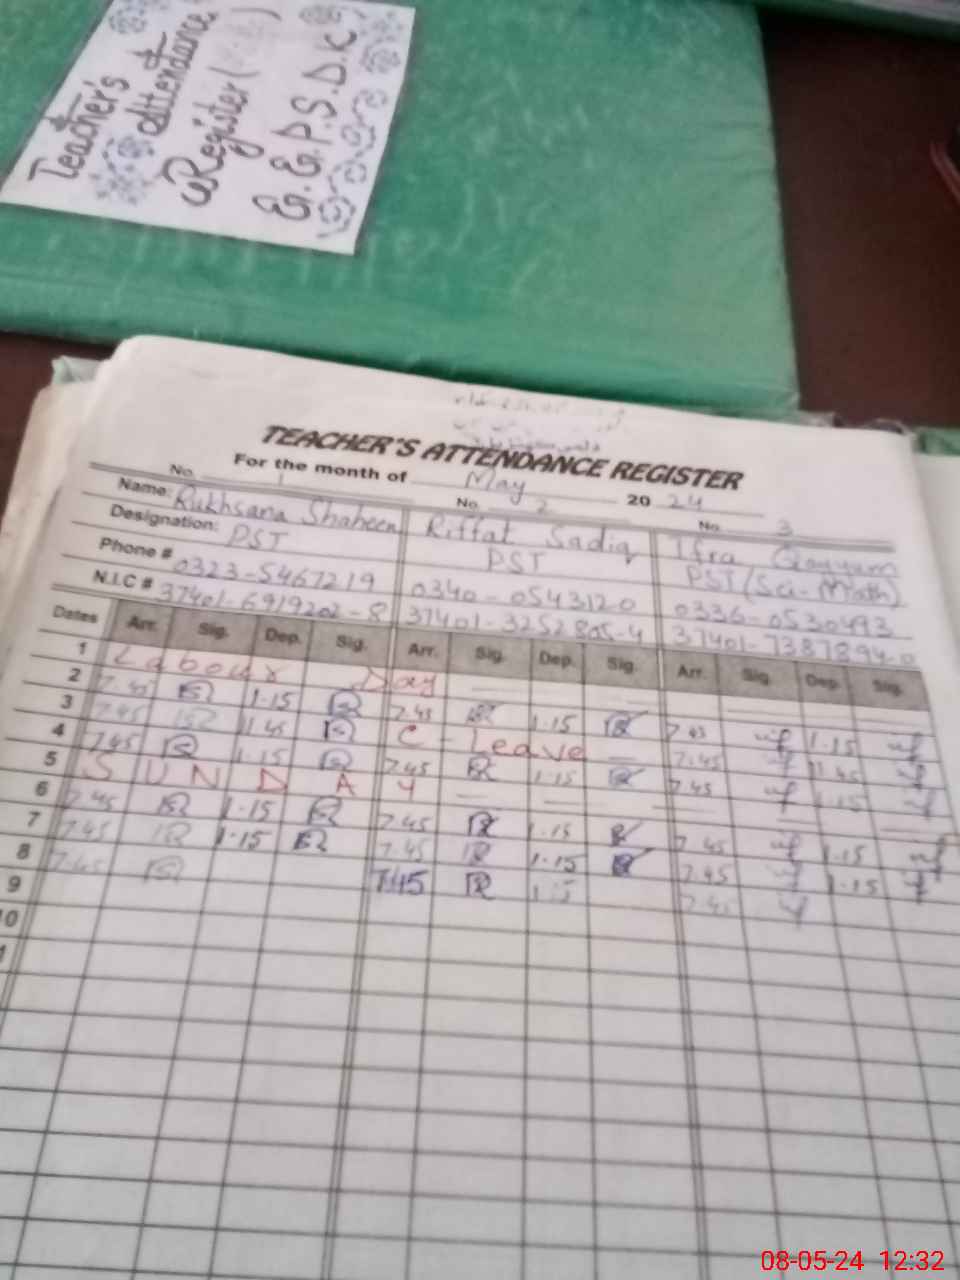 Teacher's
Attendance
Register
G.G.P.S.D.K
TEACHER'S ATTENDANCE REGISTER
For the month of May 2024
No. 1 No. 2 No. 3
Name: Rukhsana Shaheen Riffat Sadiq Ifra Qayyum
Designation: PST PST PST (Sci-Math)
Phone # 0323-5467219 0340-0543120 0336-0530493
N.I.C # 37401-6919202-8 37401-3252805-4 37401-7387894-0
Dates Arr. Sig. Dep. Sig. Arr. Sig. Dep. Sig. Arr. Sig. Dep. Sig.
1 Labour Day
2 7.45 1.15 7.45 1.15 7.45 1.15
3 7.45 1.45 C-Leave 7.45 1.45
4 7.45 1.15 7.45 1.15 7.45 1.15
5 SUNDAY
6 7.45 1.15 7.45 1.15 7.45 1.15
7 7.45 1.15 7.45 1.15 7.45 1.15
8 7.45 7.45
9
10
08-05-24 12:32